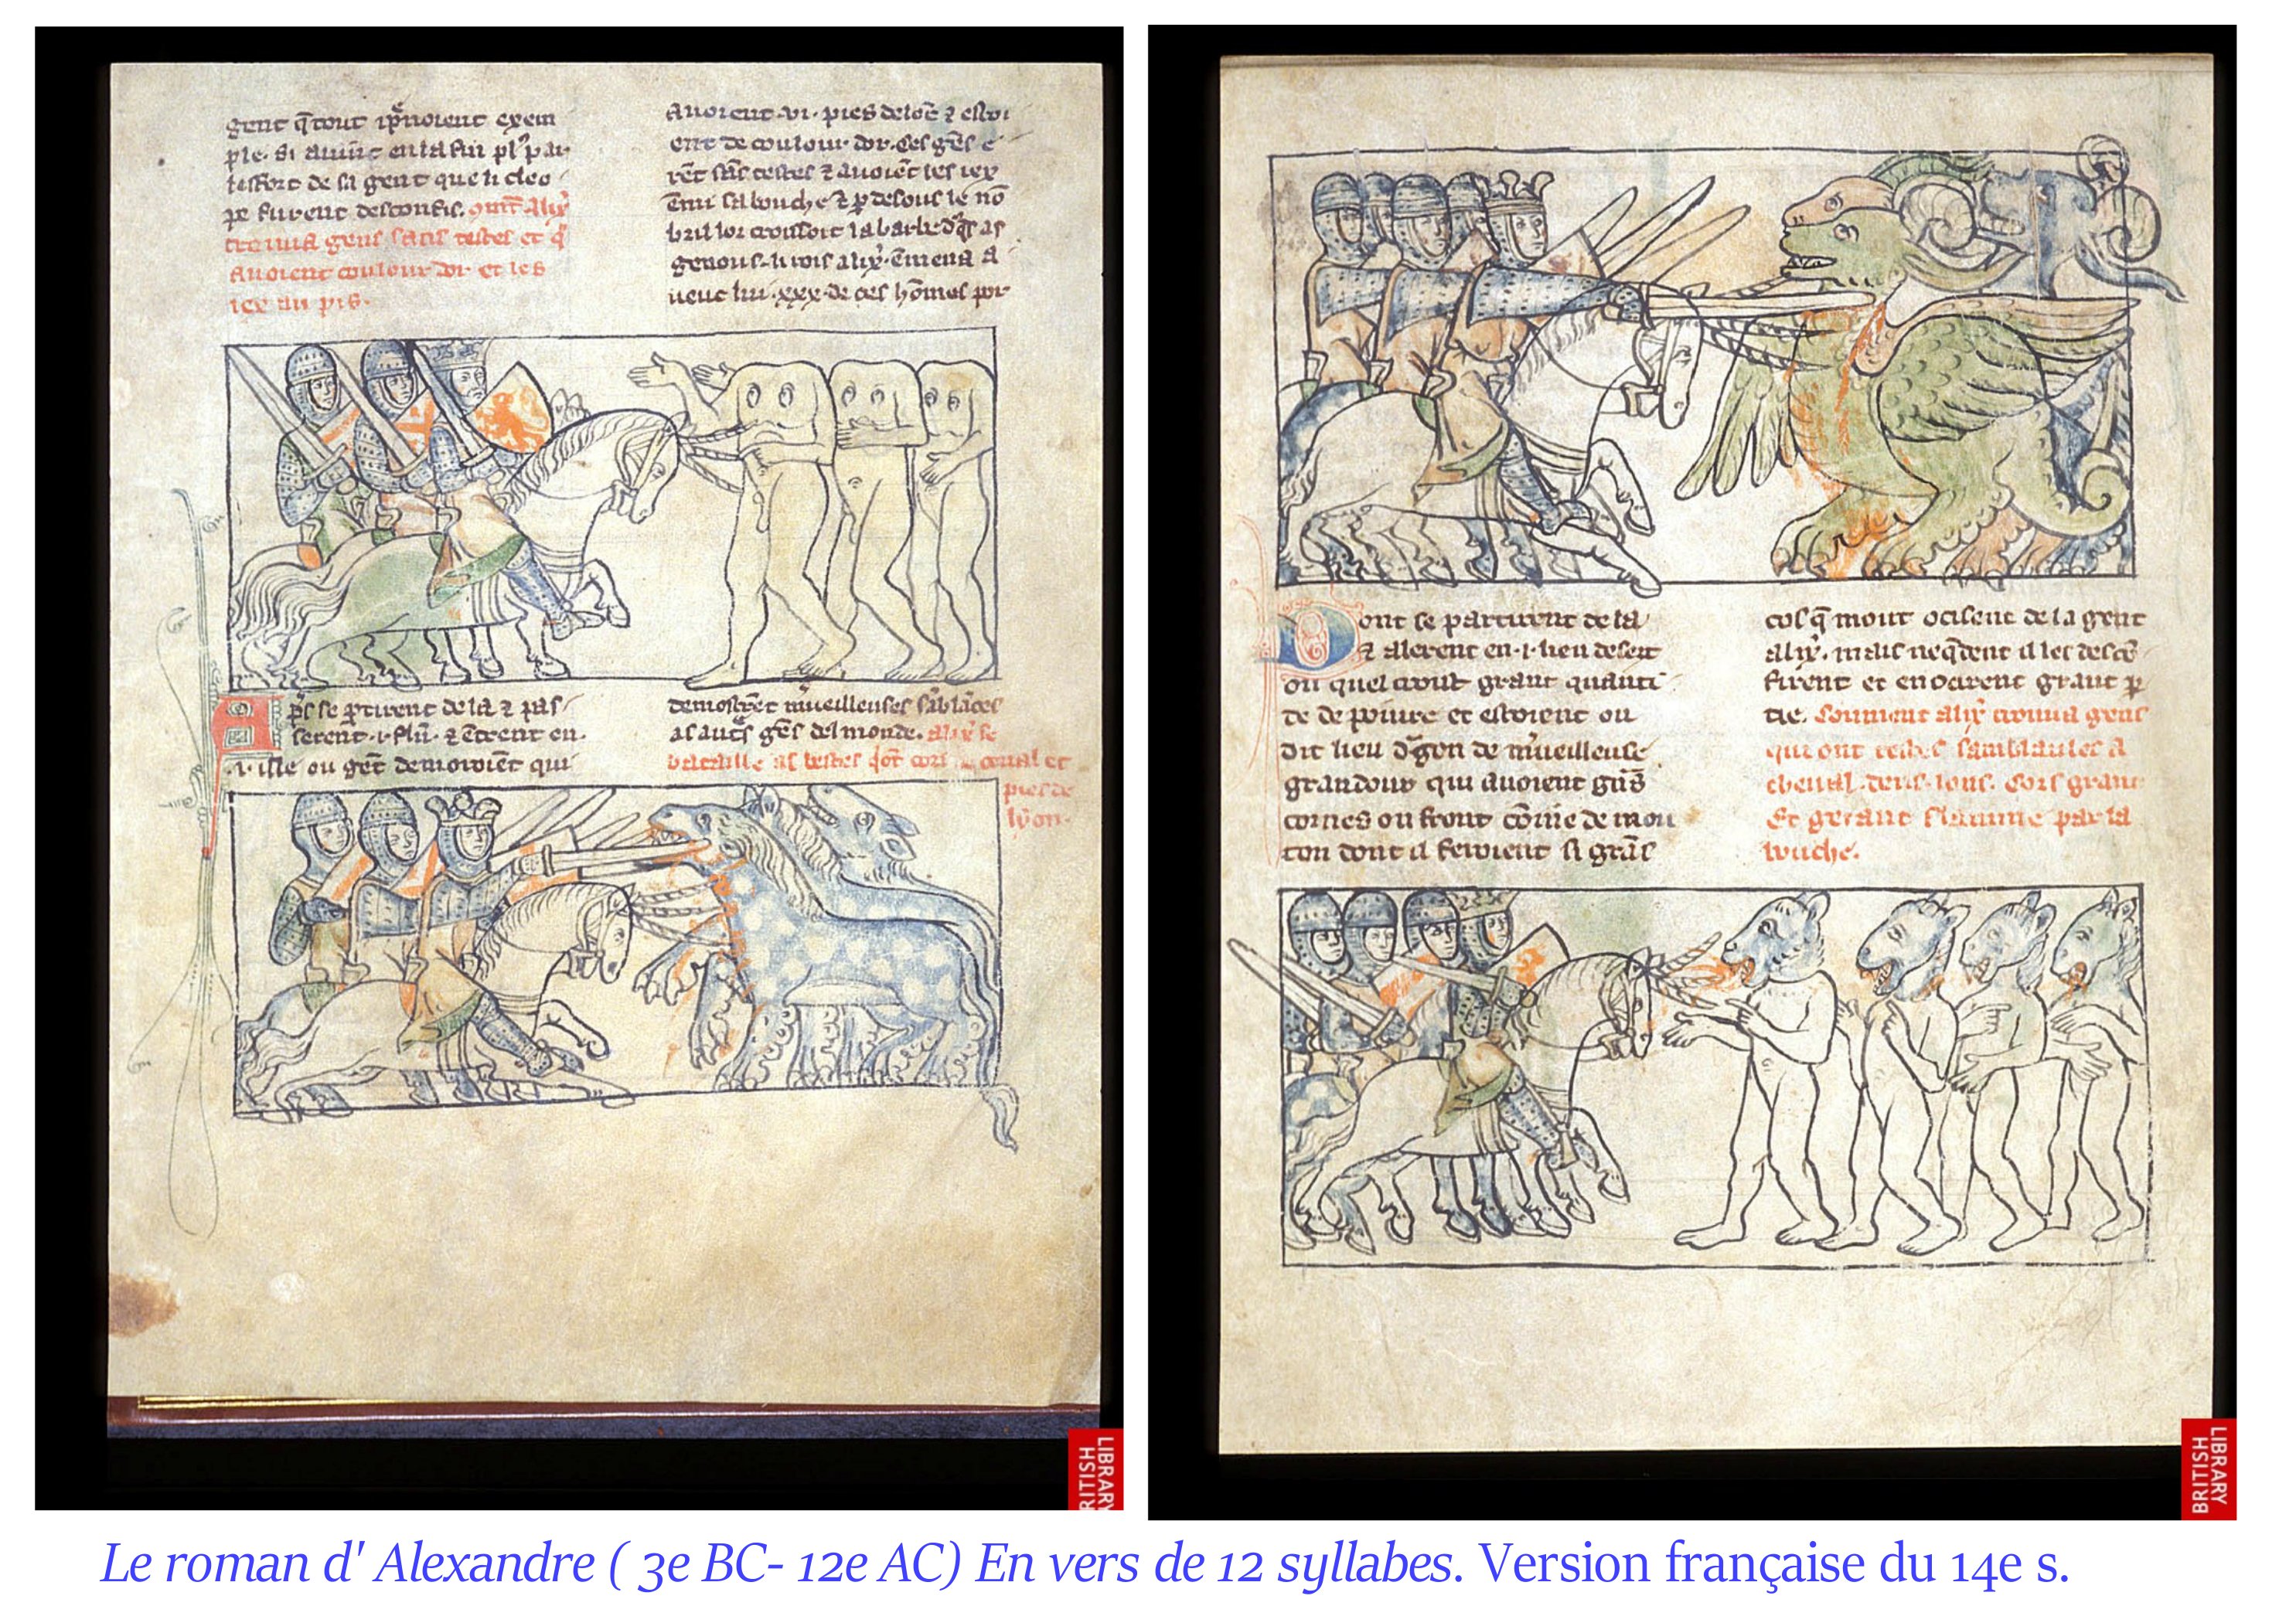 gent q̃ tout ip̃noient exem
ple. Si auint en la fin pl' par
lesfort de sa gent que li cleo
pe furent desconfis. 9mt̃ alix'
troua gens sans testes et q'
auoient coulour dor et les
iex au pis.
auoient .vi. pies de lõc ⁊ estoi
ent de coulour dor. Ces gẽs e
rẽt sãs testes ⁊ auoiẽt les iex
bouche ⁊ p desous le nõ
bril lor croissoit la barbe as
genous. li rois alix'. Emena a
uenc lui .xxx. de ces hõmes por
Aps se ptirent de la ⁊ pas
serent .i. flũ. ⁊ ẽtrent en
.i. ille ou gẽt demoroiẽt qui
demostrẽt mueilleuses sãblãces
as autes gẽs del monde. alix' se
bataille as bestes dõt cors cheual et
pies de
lyon.
Dont se partirent de la
⁊ alerent en .i. lieu desert
ou quel croist grant quanti
te de poiure et estoient ou
dit lieu dragon de mueilleuse
grandour qui auoient grãs
cornes ou front cõme de mou
ton dont il feroient si grãs
cols q̃ mout ocisent de la gent
alix'. mais neqdent il les descõ
firent et en ocirent grant p
tie. Comment alix' trouua gens
qui ont testes samblables a
cheual. dens. lons. Cors grant
Et getant flamme par la
bouche.
BRITISH
LIBRARY
BRITISH
LIBRARY
Le roman d' Alexandre ( 3e BC- 12e AC) En vers de 12 syllabes. Version française du 14e s.